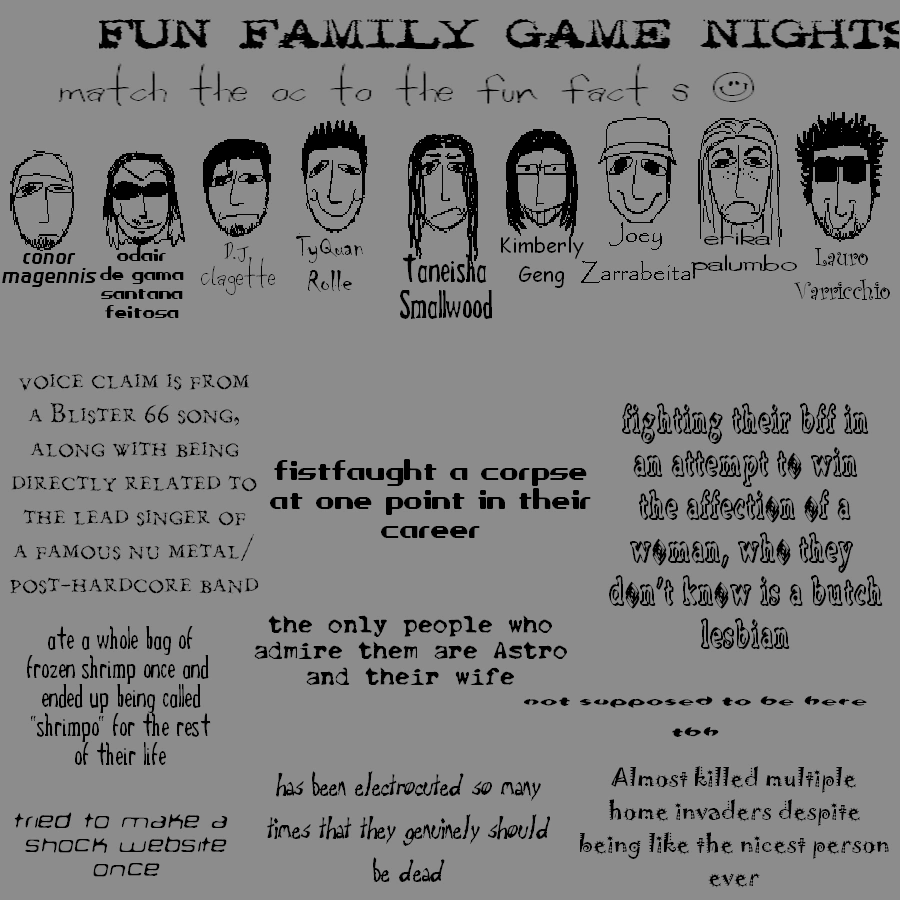 FUN FAMILY GAME NIGHTS
match the oc to the fun fact s ☺
conor
magennis
odair
de gama
santana
feitosa
D.J.
clagette
TyQuan
Rolle
Taneisha
Smallwood
Kimberly
Geng
Joey
Zarrabeita
erika
palumbo
Lauro
Varricchio
VOICE CLAIM IS FROM
A BLISTER 66 SONG,
ALONG WITH BEING
DIRECTLY RELATED TO
THE LEAD SINGER OF
A FAMOUS NU METAL/
POST-HARDCORE BAND
fistfaught a corpse
at one point in their
career
fighting their bff in
an attempt to win
the affection of a
woman, who they
don't know is a butch
lesbian
ate a whole bag of
frozen shrimp once and
ended up being called
"shrimpo" for the rest
of their life
the only people who
admire them are Astro
and their wife
not supposed to be here
tbh
tried to make a
shock website
once
has been electrocuted so many
times that they genuinely should
be dead
Almost killed multiple
home invaders despite
being like the nicest person
ever